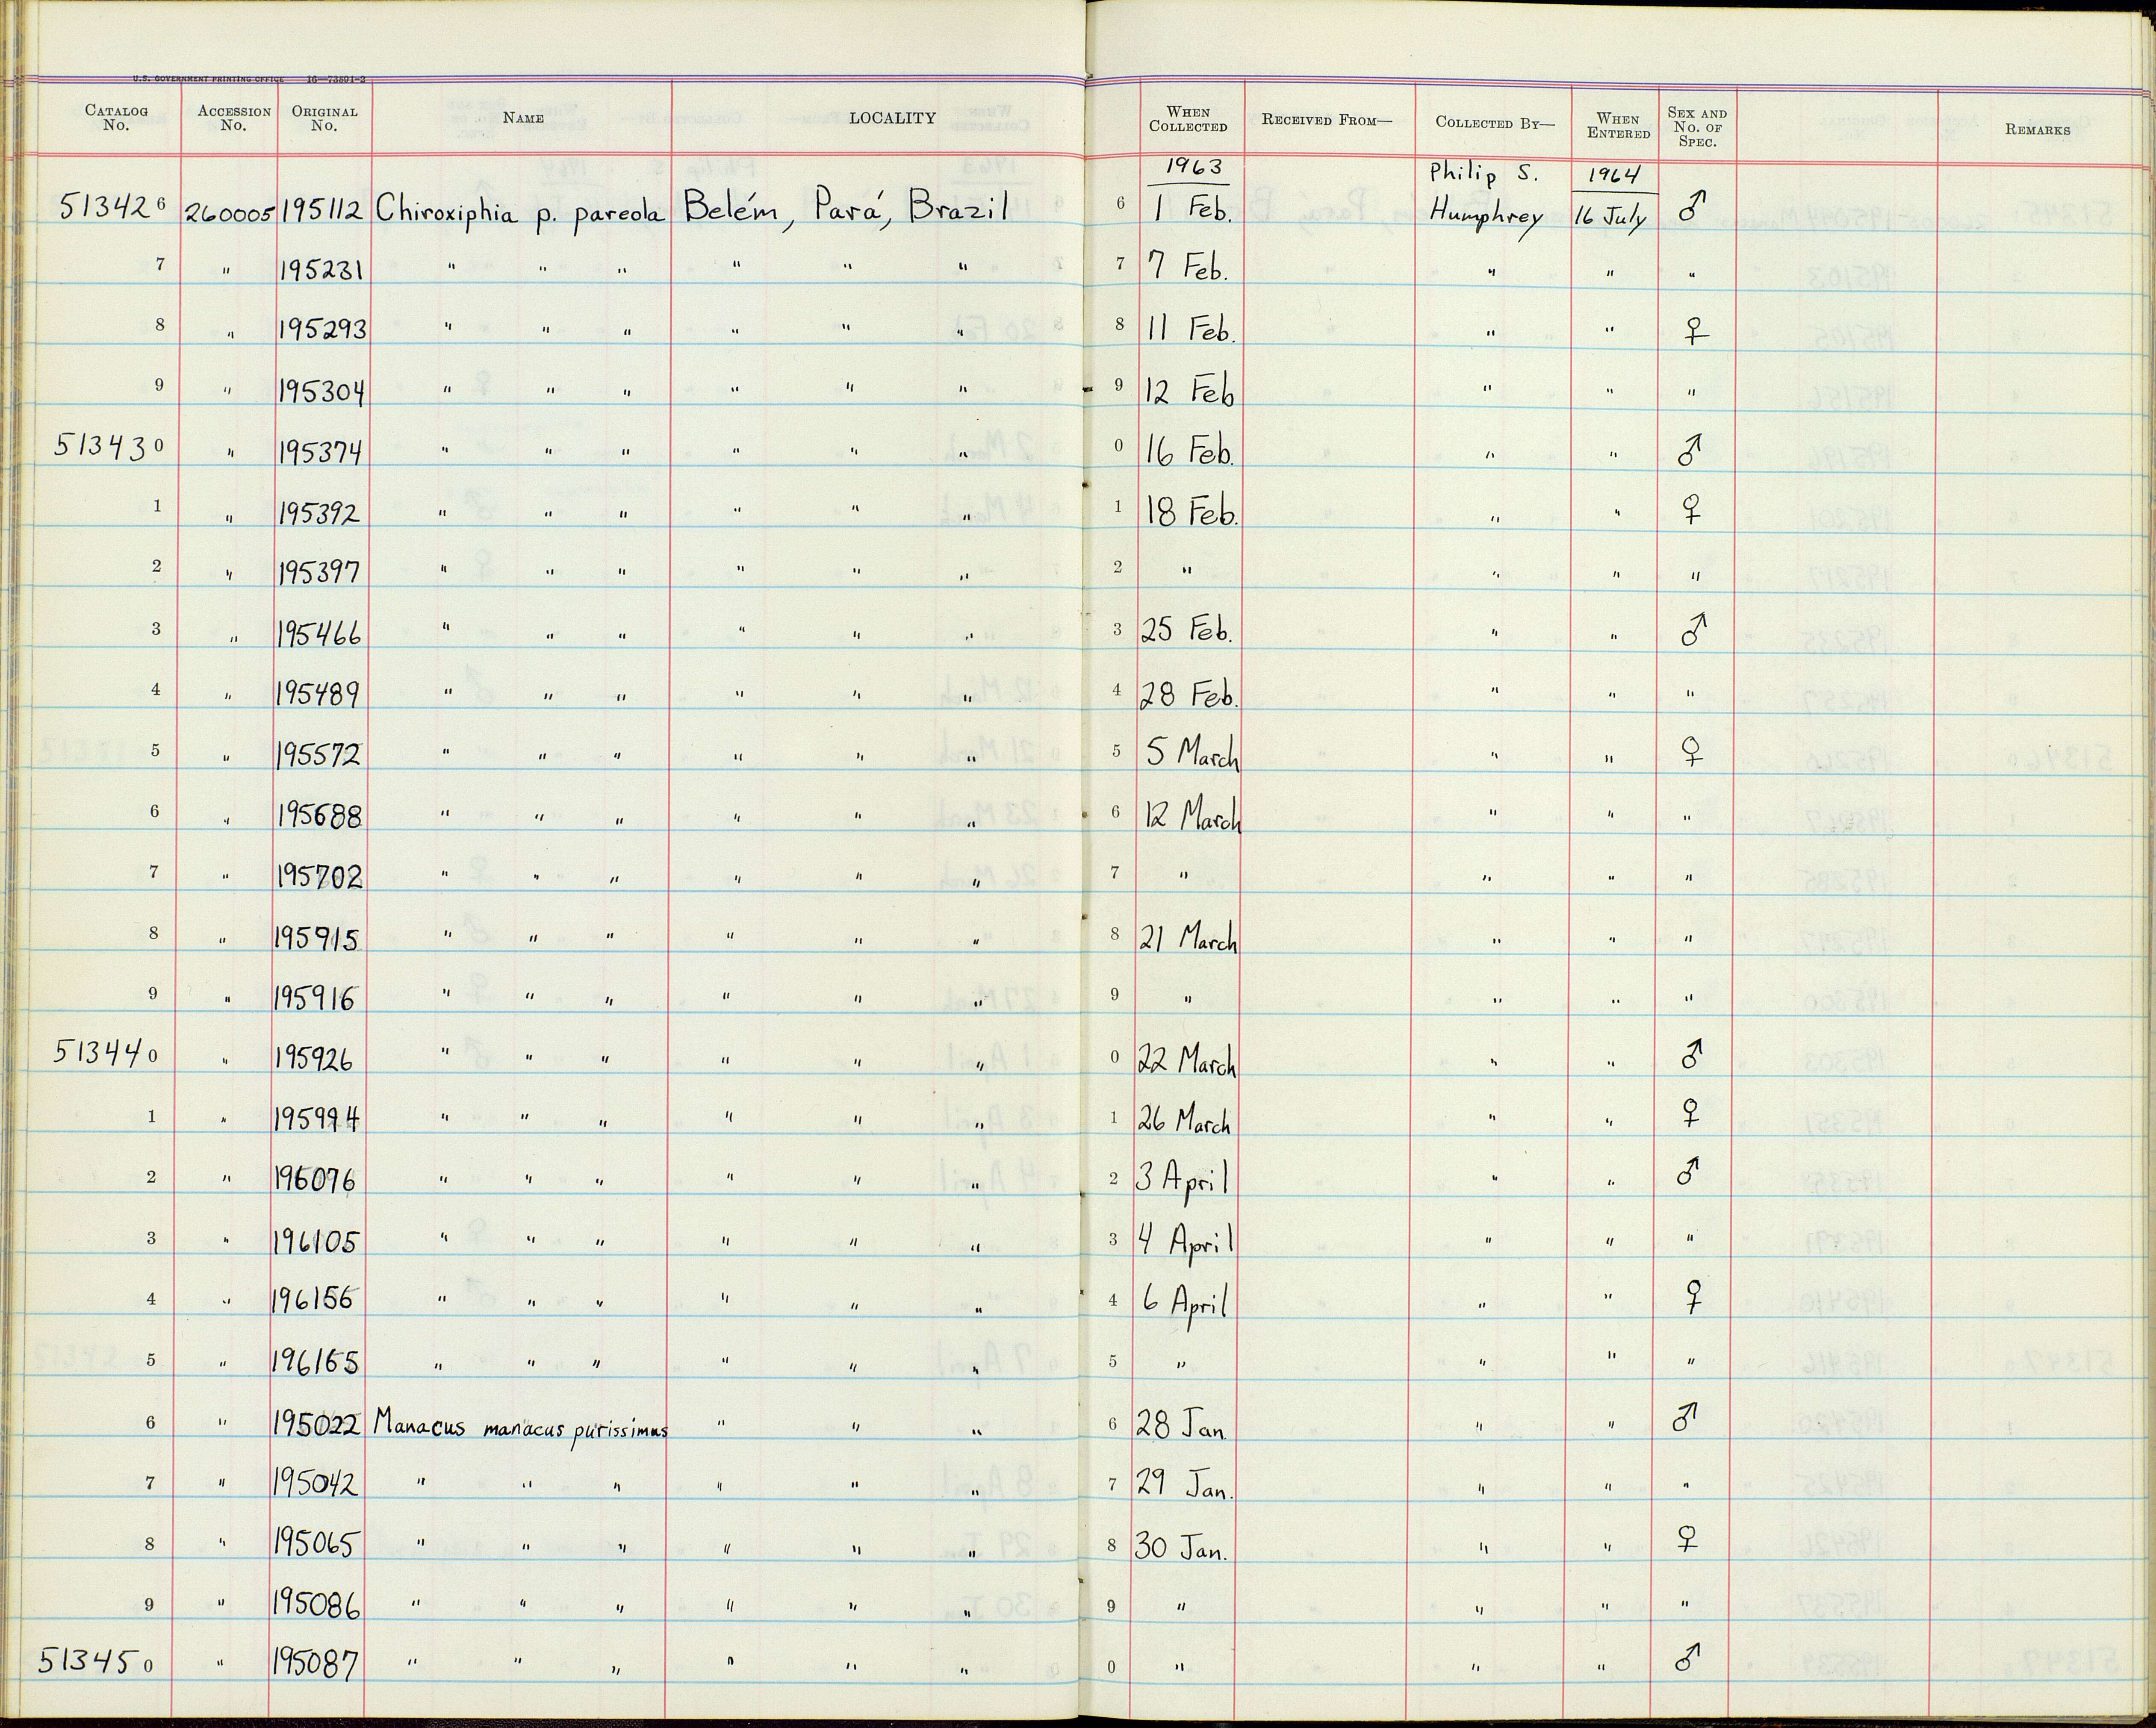 U.S. GOVERNMENT PRINTING OFFICE 16—73801-2
CATALOG No. ACCESSION No. ORIGINAL No. NAME LOCALITY WHEN COLLECTED RECEIVED FROM— COLLECTED BY— WHEN ENTERED SEX AND No. OF SPEC. REMARKS
1963 Philip S. 1964
513426 260005 195112 Chiroxiphia p. pareola Belém, Pará, Brazil 6 1 Feb. Humphrey 16 July ♂
7 " 195231 " " " " " " 7 7 Feb. " " "
8 " 195293 " " " " " " 8 11 Feb. " " ♀
9 " 195304 " " " " " " 9 12 Feb " " "
513430 " 195374 " " " " " " 0 16 Feb. " " ♂
1 " 195392 " " " " " " 1 18 Feb. " " ♀
2 " 195397 " " " " " " 2 " " " "
3 " 195466 " " " " " " 3 25 Feb. " " ♂
4 " 195489 " " " " " " 4 28 Feb. " " "
5 " 195572 " " " " " " 5 5 March " " ♀
6 " 195688 " " " " " " 6 12 March " " "
7 " 195702 " " " " " " 7 " " " "
8 " 195915 " " " " " " 8 21 March " " "
9 " 195916 " " " " " " 9 " " " "
513440 " 195926 " " " " " " 0 22 March " " ♂
1 " 195994 " " " " " " 1 26 March " " ♀
2 " 196096 " " " " " " 2 3 April " " ♂
3 " 196105 " " " " " " 3 4 April " " "
4 " 196156 " " " " " " 4 6 April " " ♀
5 " 196165 " " " " " " 5 " " " "
6 " 195022 Manacus manacus purissimus " " " 6 28 Jan " " ♂
7 " 195042 " " " " " " 7 29 Jan. " " "
8 " 195065 " " " " " " 8 30 Jan. " " ♀
9 " 195086 " " " " " " 9 " " " "
513450 " 195087 " " " " " " 0 " " " ♂